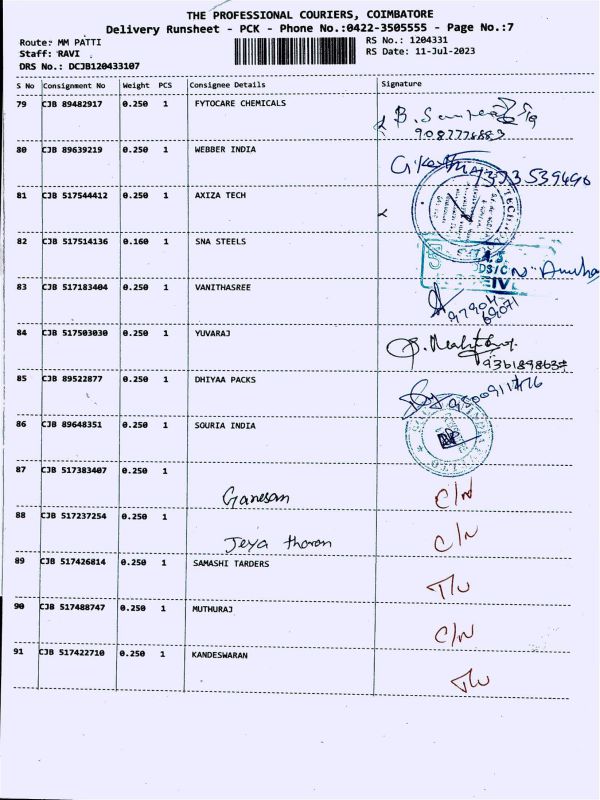 THE PROFESSIONAL COURIERS, COIMBATORE
Delivery Runsheet - PCK - Phone No.:0422-3505555 - Page No.:7
Route: MM PATTI
RS No.: 1204331
Staff: RAVI
RS Date: 11-Jul-2023
DRS No.: DCJB120433107
S No Consignment No Weight PCS Consignee Details Signature
79 CJB 89482917 0.250 1 FYTOCARE CHEMICALS
80 CJB 89639219 0.250 1 WEBBER INDIA
81 CJB 517544412 0.250 1 AXIZA TECH
82 CJB 517514136 0.160 1 SNA STEELS
83 CJB 517183404 0.250 1 VANITHASREE
97904
69071
84 CJB 517503030 0.250 1 YUVARAJ
85 CJB 89522877 0.250 1 DHIYAA PACKS
86 CJB 89648351 0.250 1 SOURIA INDIA
87 CJB 517383407 0.250 1 Ganesan C/N
88 CJB 517237254 0.250 1 Jeya tharan C/N
89 CJB 517426814 0.250 1 SAMASHI TARDERS
90 CJB 517488747 0.250 1 MUTHURAJ C/N
91 CJB 517422710 0.250 1 KANDESWARAN